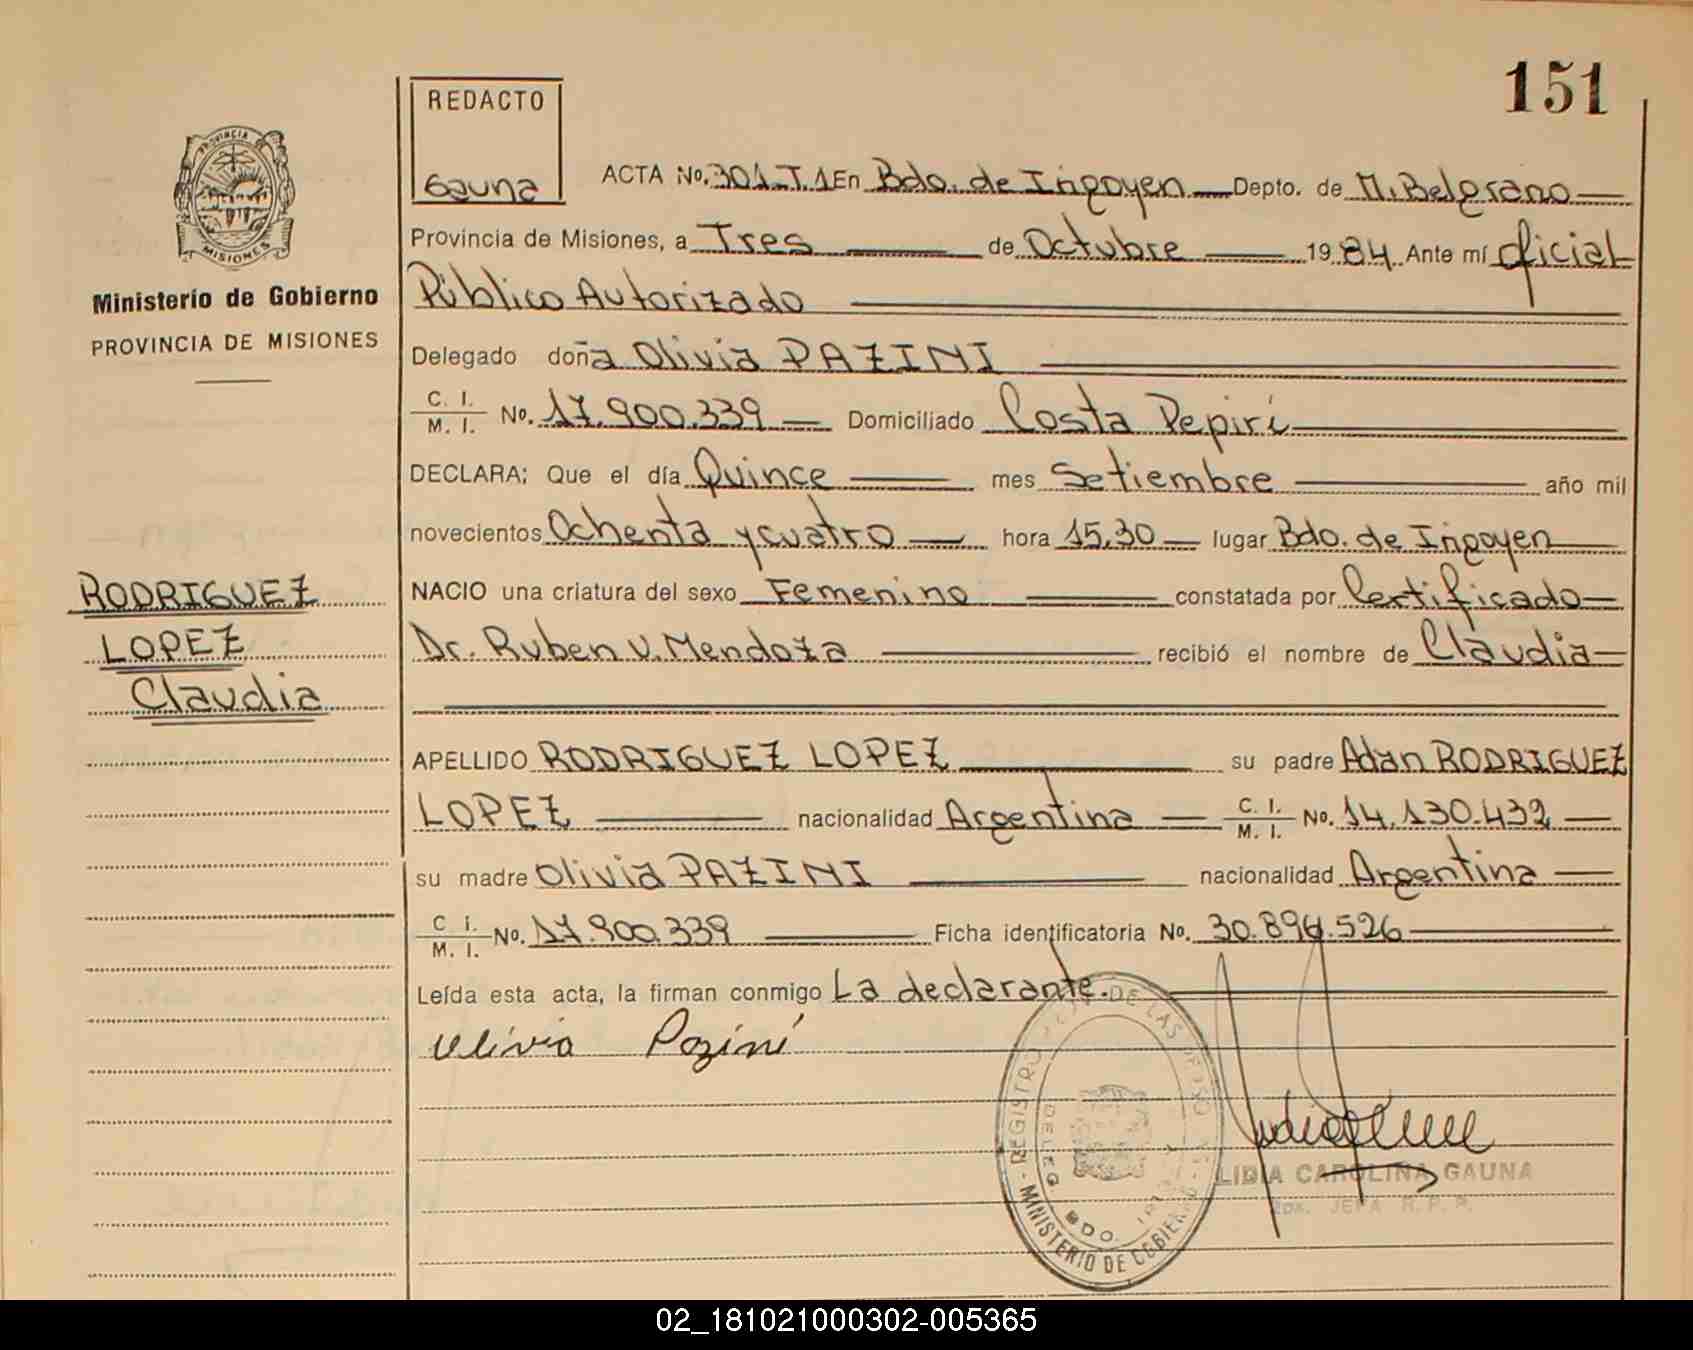 151
PROVINCIA
MISIONES
Ministerio de Gobierno
PROVINCIA DE MISIONES
RODRIGUEZ
LOPEZ
Claudia
REDACTO
Gauna
ACTA No. 301-T.1 En Bdo. de Irigoyen Depto. de M. Belgrano
Provincia de Misiones, a Tres de Octubre 1984 Ante mí Oficial
Público Autorizado
Delegado doña Olivia PAZINI
C. I.
M. I. No. 17.900.339 Domiciliado Costa Pepirí
DECLARA: Que el día Quince mes Setiembre año mil
novecientos Ochenta y cuatro hora 15,30 lugar Bdo. de Irigoyen
NACIO una criatura del sexo Femenino constatada por Certificado
Dr. Ruben V. Mendoza recibió el nombre de Claudia
APELLIDO RODRIGUEZ LOPEZ su padre Adan RODRIGUEZ
LOPEZ nacionalidad Argentina C. I. M. I. No. 14.130.432
su madre Olivia PAZINI nacionalidad Argentina
C. I.
M. I. No. 17.900.339 Ficha identificatoria No. 30.894.526
Leída esta acta, la firman conmigo La declarante.
Olivia Pazini
REGISTRO DE LAS PERSONAS
DELEG. BDO.
MINISTERIO DE GOBIERNO
LIDIA CAROLINA GAUNA
JEFA R. P.
02_181021000302-005365